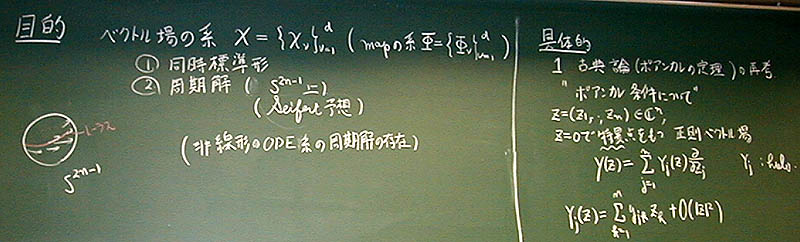 目的
ベクトル場の系 X = {Xν}^d_{ν=1} (mapの系 Φ = {Φν}^d_{ν=1})
① 同時標準形
② 周期解 ( S^{2n-1}上 )
(Seifert予想)
(非線形のODE系の周期解の存在)
S^{2n-1}
具体的
1 古典論 (ポアンカレの定理) の再考
"ポアンカレ条件について"
z=(z₁, ‥, zₙ) ∈ ℂⁿ,
z=0で特異点をもつ 正則ベクトル場
Y(z) = Σ_{j=1}^{n} Y_j(z) ∂/∂z_j Y_j : holo.
Y_j(z) = Σ_{k=1}^{n} y_{jk} z_k + O(|z|²)